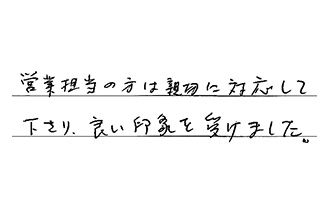 営業担当の方は親切に対応して
下さり、良い印象を受けました。